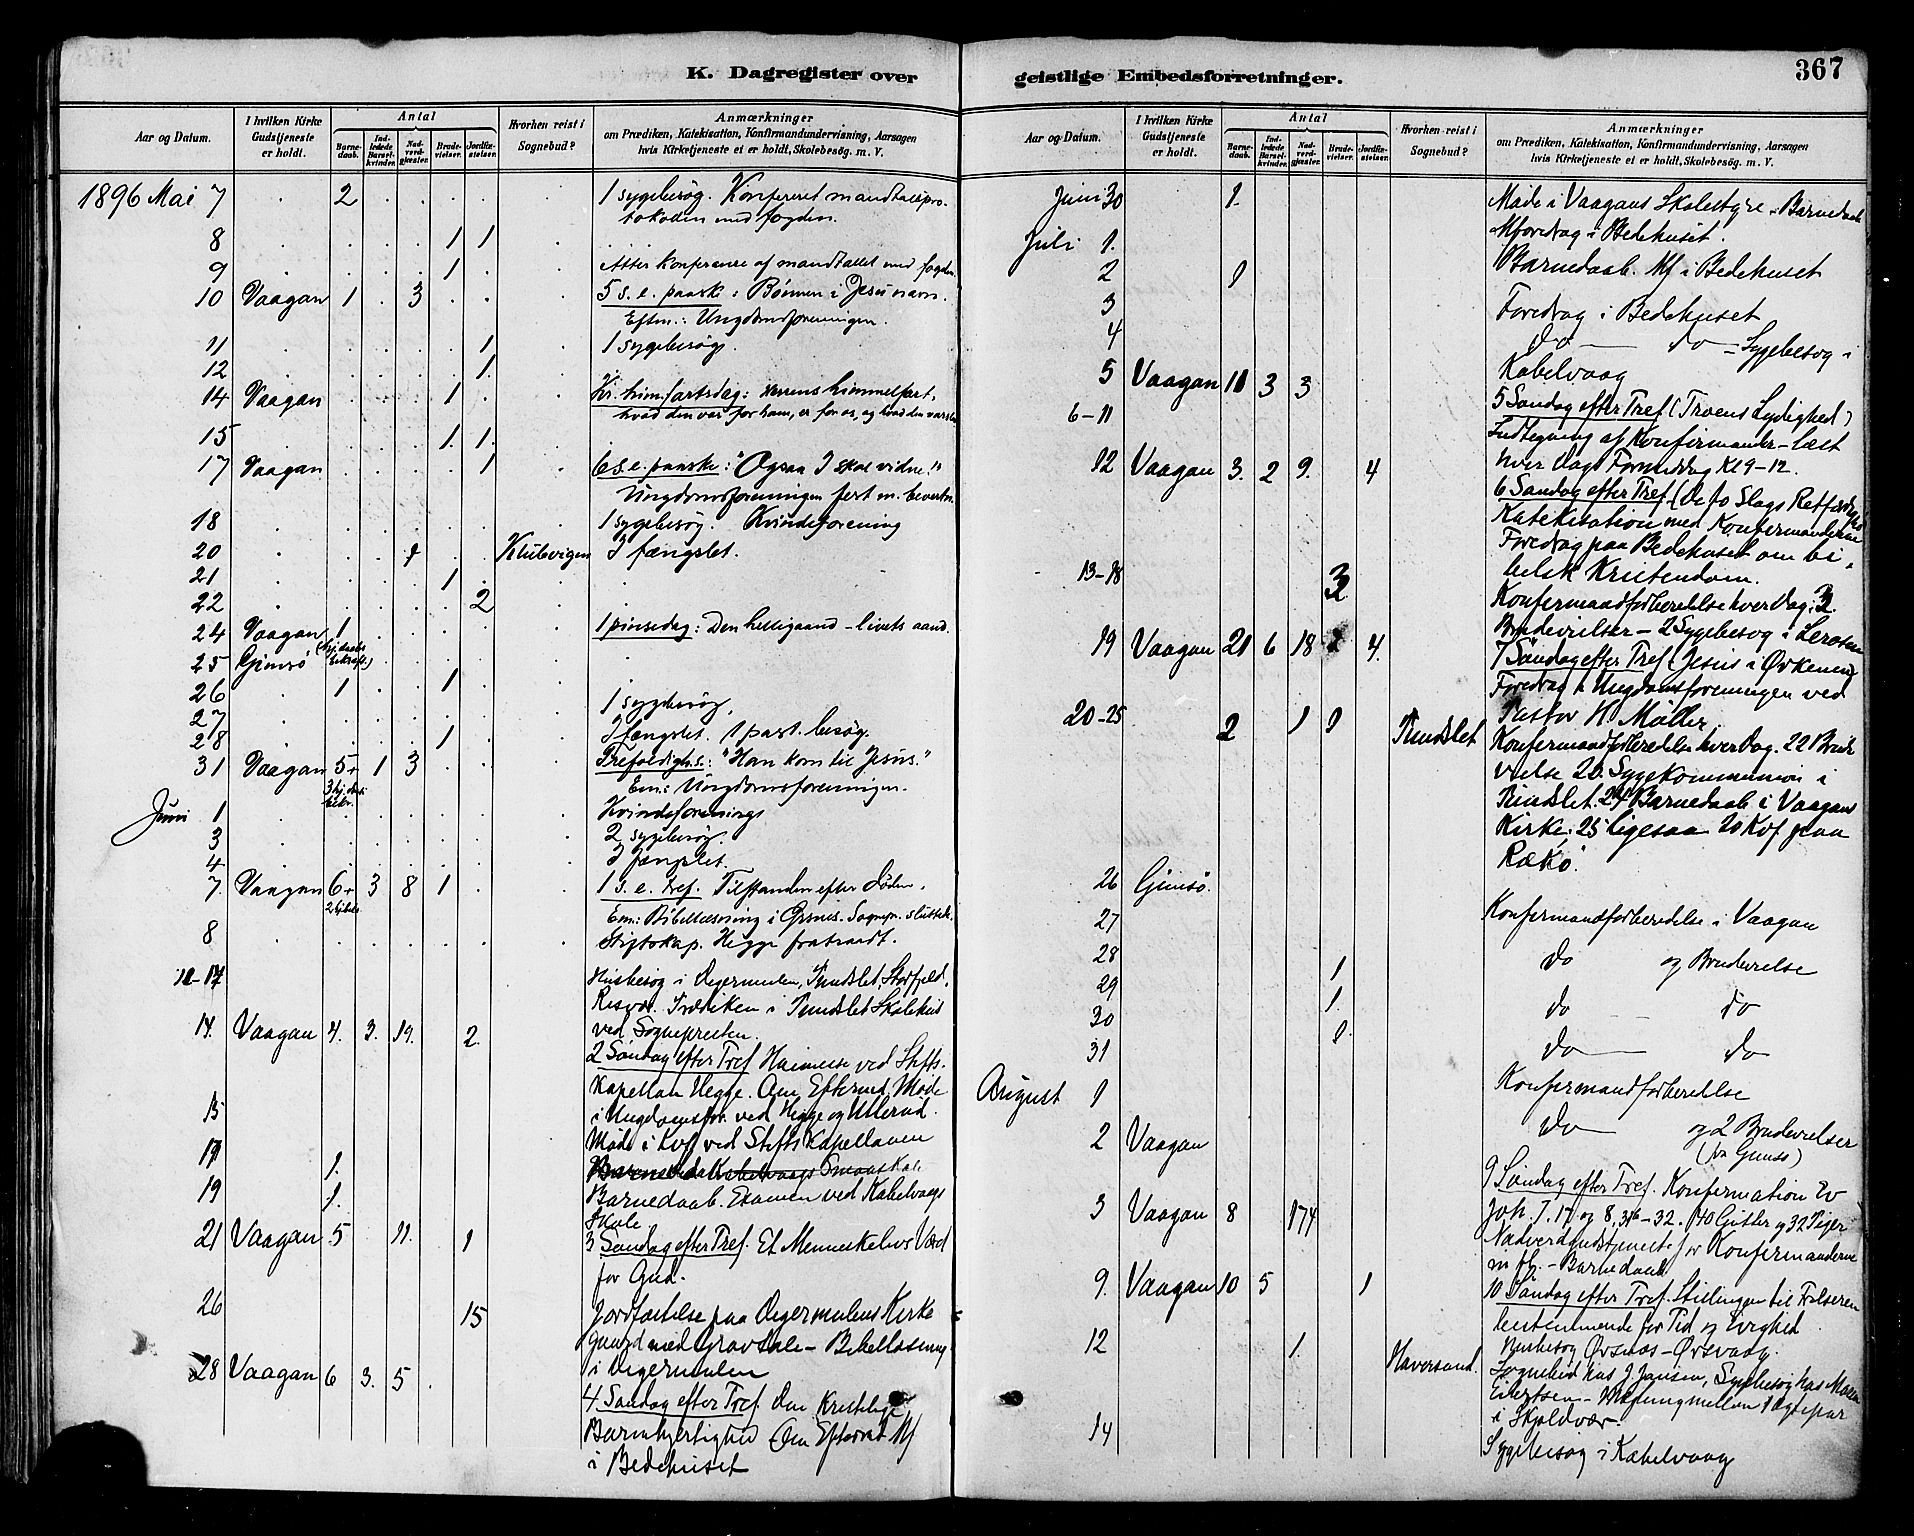 K. Dagregister over
Aar og Datum.
I hvilken Kirke Gudstjeneste er holdt.
Antal
Barnedaab.
Indledede Barselkvinder.
Nadverdgjester.
Brudevielser.
Jordfæstelser.
Hvorhen reist i Sognebud?
Anmærkninger
om Prædiken, Katekisation, Konfirmandundervisning, Aarsagen
hvis Kirketjeneste ei er holdt, Skolebesög. m. V.
1896 Mai 7 . 2 . . . . . 1 sygebesøg. Konfereret mandtalspro-
tokollen med fogden.
8 . . . . 1 1 .
9 . . . . 1 . . Atter konferense af mandtallet med fogden
10 Vaagan 1 . 3 . . . 5 s. e. paaske: Bønnen i Jesu navn.
Eftm.: Ungdomsforeningen.
11 . . . . . 1 . 1 sygebesøg.
12 . . . . . 1 .
14 Vaagan . . . 1 . . Kr. himmelfartsdag: Herrens himmelfart,
hvad den var for ham, er for os, og
15 . . . . 1. 1. .
17 Vaagan . . . . 1 . 6 s. e. paaske: "Ogsaa I skal vidne."
Ungdomsforeningen fest m. bevertn.
18 . . . . . . . 1 sygebesøg. Kvindeforening
20 . . . 1 . . Klubvigen I fængslet.
21 . . . . 1 . .
22 . . . . . 2 .
24 Vaagan 1 . . . . . 1 pinsedag: Den helligaand - livets aand.
25 Gimsø (hj.daabs bekræft.)
26 . 1 . . 1 . .
27 . . . . . . . 1 sygebesøg.
28 . . . . 1 . . I fængslet. 1 past. besøg.
31 Vaagan 5+ 1 3 . . . Trefoldigh.s.: "Han kom til Jesus."
3 hj. daabs bekr. Em.: Ungdomsforeningen.
Juni 1 . . . . . . . Kvindeforenings
3 . . . . . . . 2 sygebesøg.
4 . . . . . . . I fængslet.
7 Vaagan 6+ 3 8 1 . . 1 s. e. tref. Tilstanden efter døden.
Em: Bibellæsning i Ørsnes. Sognepr. sluttet.
8 . . . . . . . Stiftskap. Hegge fratraadt.
10-17 Husbesøg i Digermulen, Tendslet, Storfjeld,
Risvær. Prædiken i Tendslet Skolehus
ved Sognepresten.
14. Vaagan 4. 3. 19. 2. 2 Søndag efter Tref Høimesse ved Stifts-
kapellan Hegge. Om Eftermd. Møde
i Ungdomsfor. ved Hegge og Ullerud.
15 Møde i Kvf ved Stiftskapellanen
17 1.
19 1. Barnedaab. Examen ved Kabelvaags
Skole
21 Vaagan 5 11. 1 3 Søndag efter Tref. Et Menneskelivs Værd
for Gud.
26 15 Jordfæstelse paa Digermulens Kirke
gaard med Gravtale - Bibellæsning
i Digermulen
28 Vaagan 6 3. 5 . 4. Søndag efter Tref Den Kristelige
Barmhjertighed Om Efterm Mf
i Bedehuset
geistlige Embedsforretninger.
367
Aar og Datum.
I hvilken Kirke Gudstjeneste er holdt.
Antal
Barnedaab.
Indledede Barselkvinder.
Nadverdgjester.
Brudevielser.
Jordfæstelser.
Hvorhen reist i Sognebud?
Anmærkninger
om Prædiken, Katekisation, Konfirmandundervisning, Aarsagen
hvis Kirketjeneste ei er holdt, Skolebesög. m. V.
Juni 30 1. Møde i Vaagans Skolestyre - Barnedaab
Juli 1. Mforedrag i Bedehuset.
2 1 Barnedaab. Mf i Bedehuset
3 Foredrag i Bedehuset
4 do — do - Sygebesøg i
Kabelvaag
5 Vaagan 11 3 3 5 Søndag efter Tref (Troens Lydighed)
6-11 Indtegning af Konfirmander - læst
hver Dags Formiddag Kl 9-12.
12 Vaagan 3. 2 9. 4 6 Søndag efter Tref (De to Slags Retfærdighed
Katekisation med Konfirmanderne
Foredrag paa Bedehuset om bi-
belsk Kristendom.
13-18 3 Konfermandforberedelse hver Dag: 3
Brudevielser - 2 Sygebesøg i
19 Vaagan 21 6 18 4. 7 Søndag efter Tref (Jesus i Ørkenen)
Foredrag i Ungdomsforeningen ved
Pastor H. Møller
20-25 2 1 1 Tendslet Konfermandforberedelse hver Dag. 22 Brude
vielse 20. Sygekommunion i
Tendslet. 24 Barnedaab i Vaagans
Kirke; 25 ligesaa 20 Kvf paa
Rækø.
26 Gimsø.
27 Konfermandforberedelse i Vaagan
28 1 do og Brudevielse
29 1. do do
30 1. do do
31 Konfermandforberedelse
August 1 do og 2 Brudevielser
(fra Gimsø)
2 Vaagan 9 Søndag efter Tref. Konfermation Ev
Joh. 7.17 og 8, 31-32. 40 Gutter og 32 Piger
3 Vaagan 8 174 Nadverdgudstjeneste for Konfermanderne
m fl. - Barnedaab
9. Vaagan 10 5 1 10 Søndag efter Tref. Stillingen til Frelseren
bestemmende for Tid og Evighed
12 1. Haversand. Husbesøg Ørsnæs - Ørsvaag.
Sognebud hos J Jansen, Sygebesøg hos
Eilertsen - Mægling mellem 1 Ægtepar
i Skjoldvær.
14 Sygebesøg i Kabelvaag